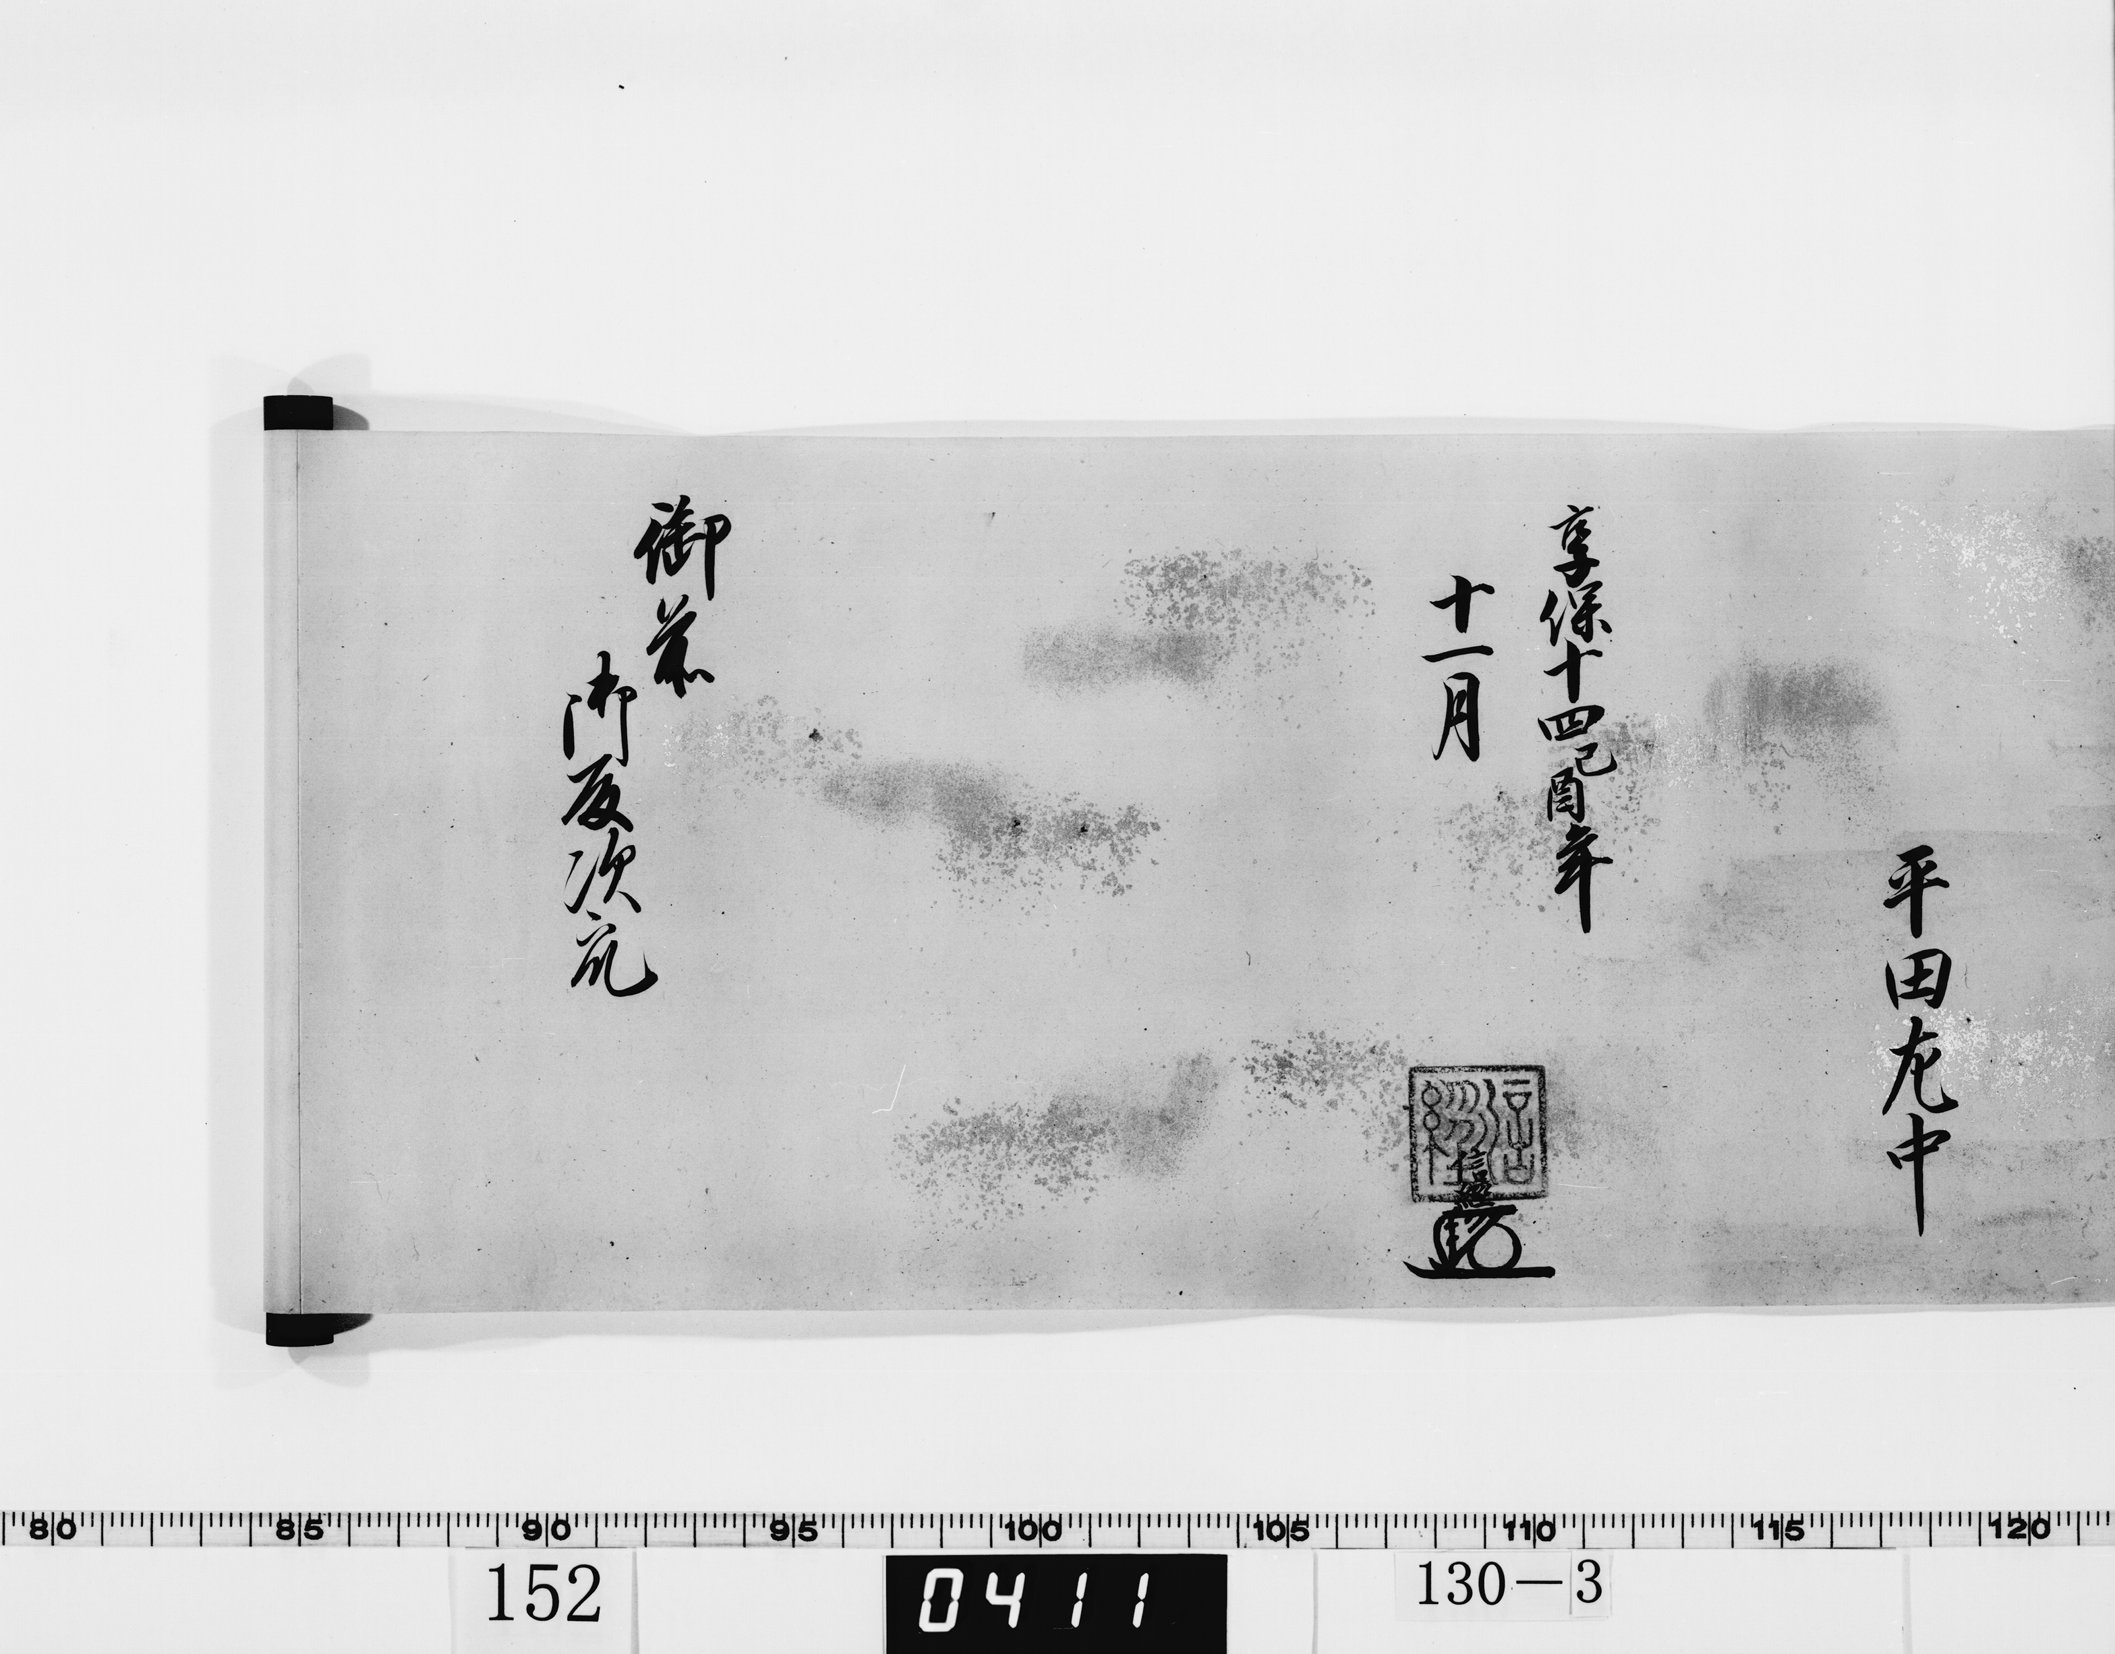 平田左中
享保十四己酉年
十一月
信
御前
御次
80 85 90 95 100 105 110 115 120
152
0411
130－3